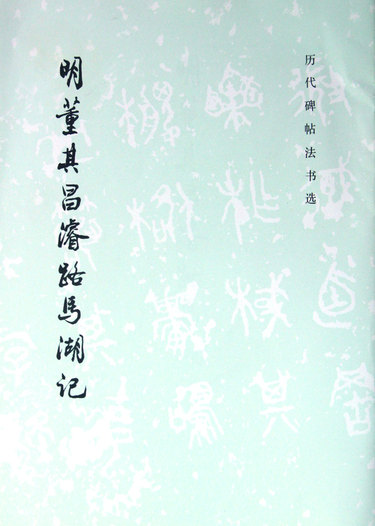 历代碑帖法书选
明董其昌濬路马湖记